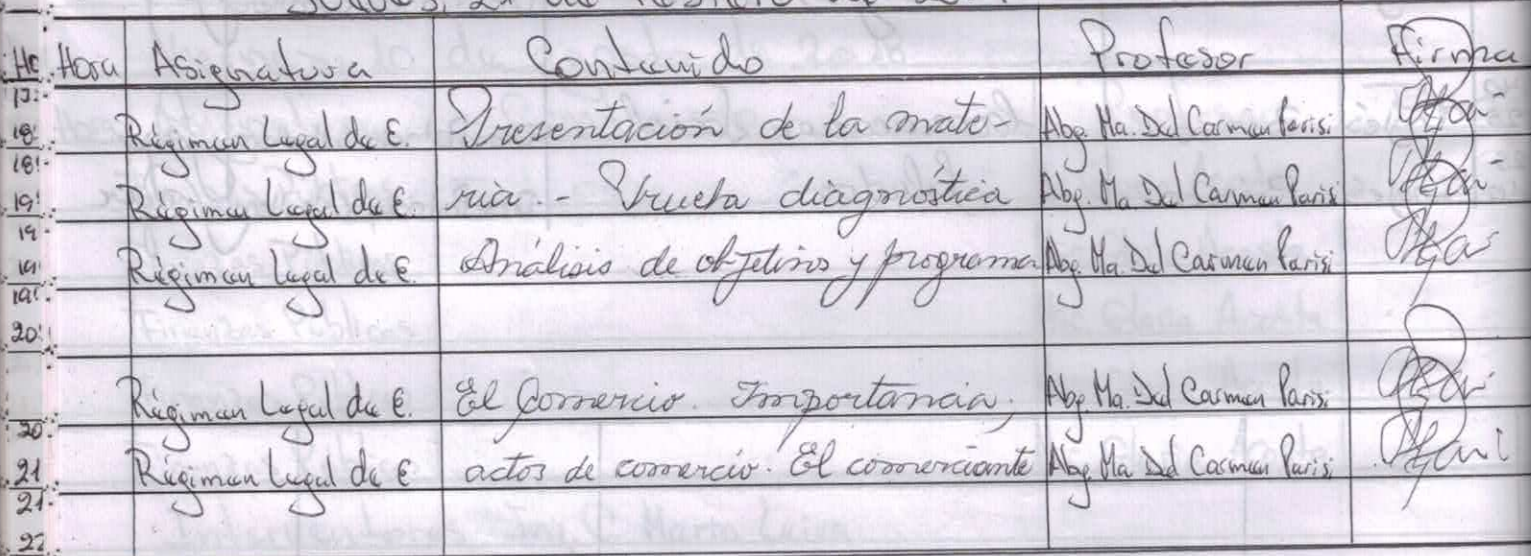 Hora Asignatura Contenido Profesor Firma
18: Régimen Legal de E. Presentación de la mate- Abg. Ma. Del Carmen Parisi
18:
19: Régimen Legal de E. ria.- Prueba diagnóstica Abg. Ma. Del Carmen Parisi
19:
19: Régimen Legal de E. Análisis de objetivos y programa Abg. Ma. Del Carmen Parisi
19:
20:
Régimen Legal de E. El Comercio. Importancia, Abg. Ma. Del Carmen Parisi
20:
21 Régimen Legal de E actos de comercio. El comerciante Abg. Ma. Del Carmen Parisi
21:
22: